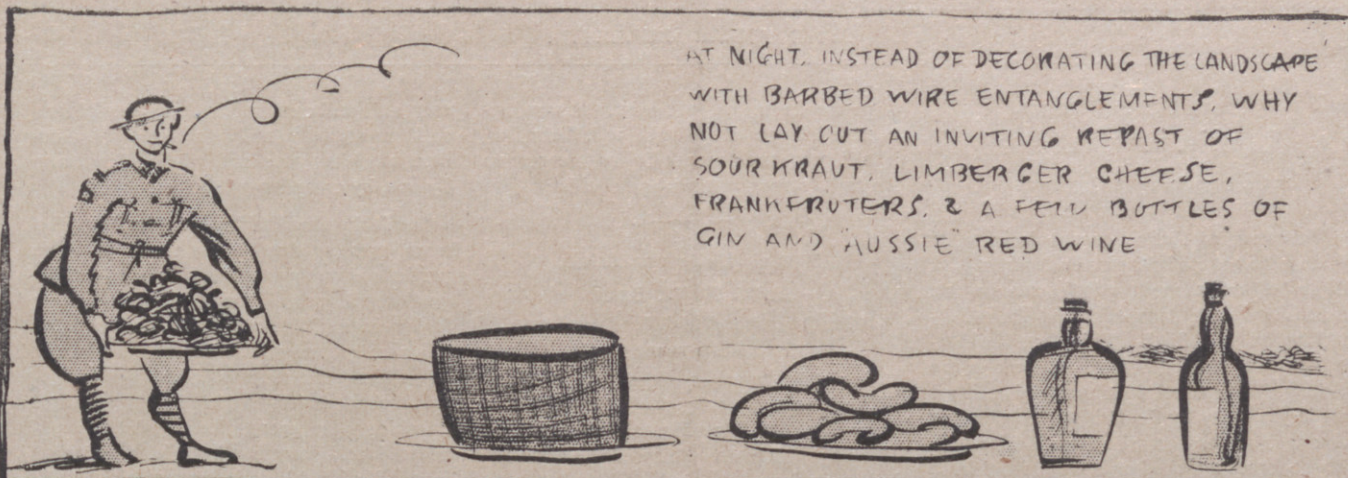 AT NIGHT. INSTEAD OF DECORATING THE LANDSCAPE
WITH BARBED WIRE ENTANGLEMENTS. WHY
NOT LAY OUT AN INVITING REPAST OF
SOUR KRAUT. LIMBERGER CHEESE,
FRANKFRUTERS. & A FEW BOTTLES OF
GIN AND "AUSSIE" RED WINE